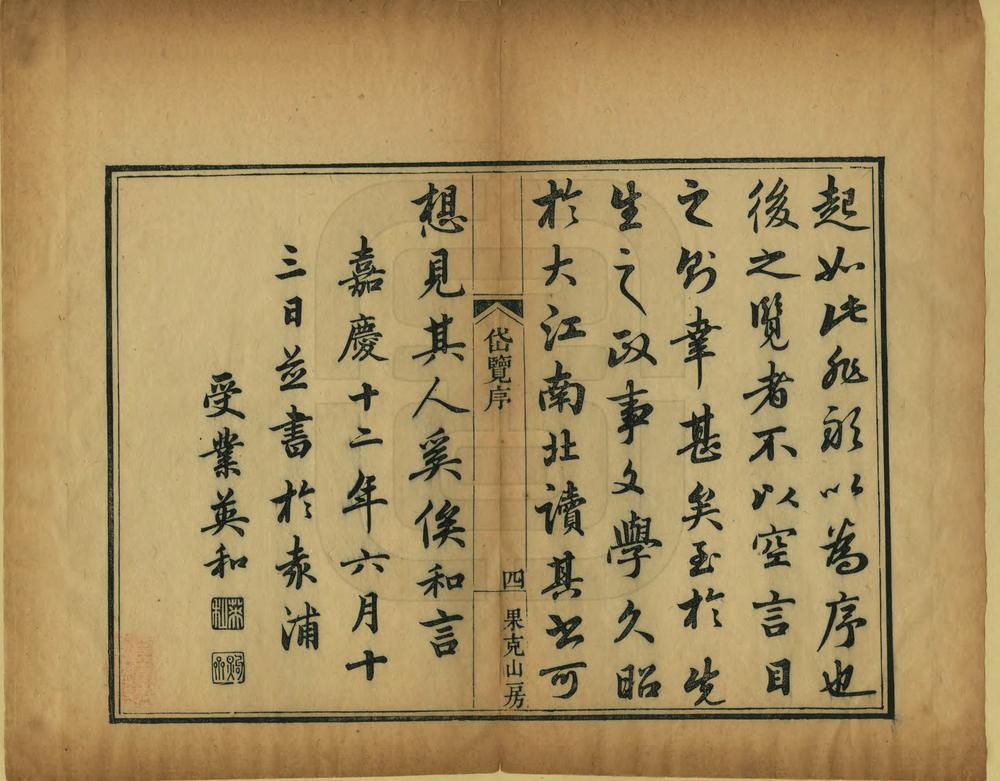 起如此非敢以為序也
後之覽者不以空言目
之則幸甚矣至於先
生之政事文學久昭
於大江南北讀其書可
想見其人奚俟和言
嘉慶十二年六月十
三日並書於袁浦
受業英和
岱覽序
四
果克山房